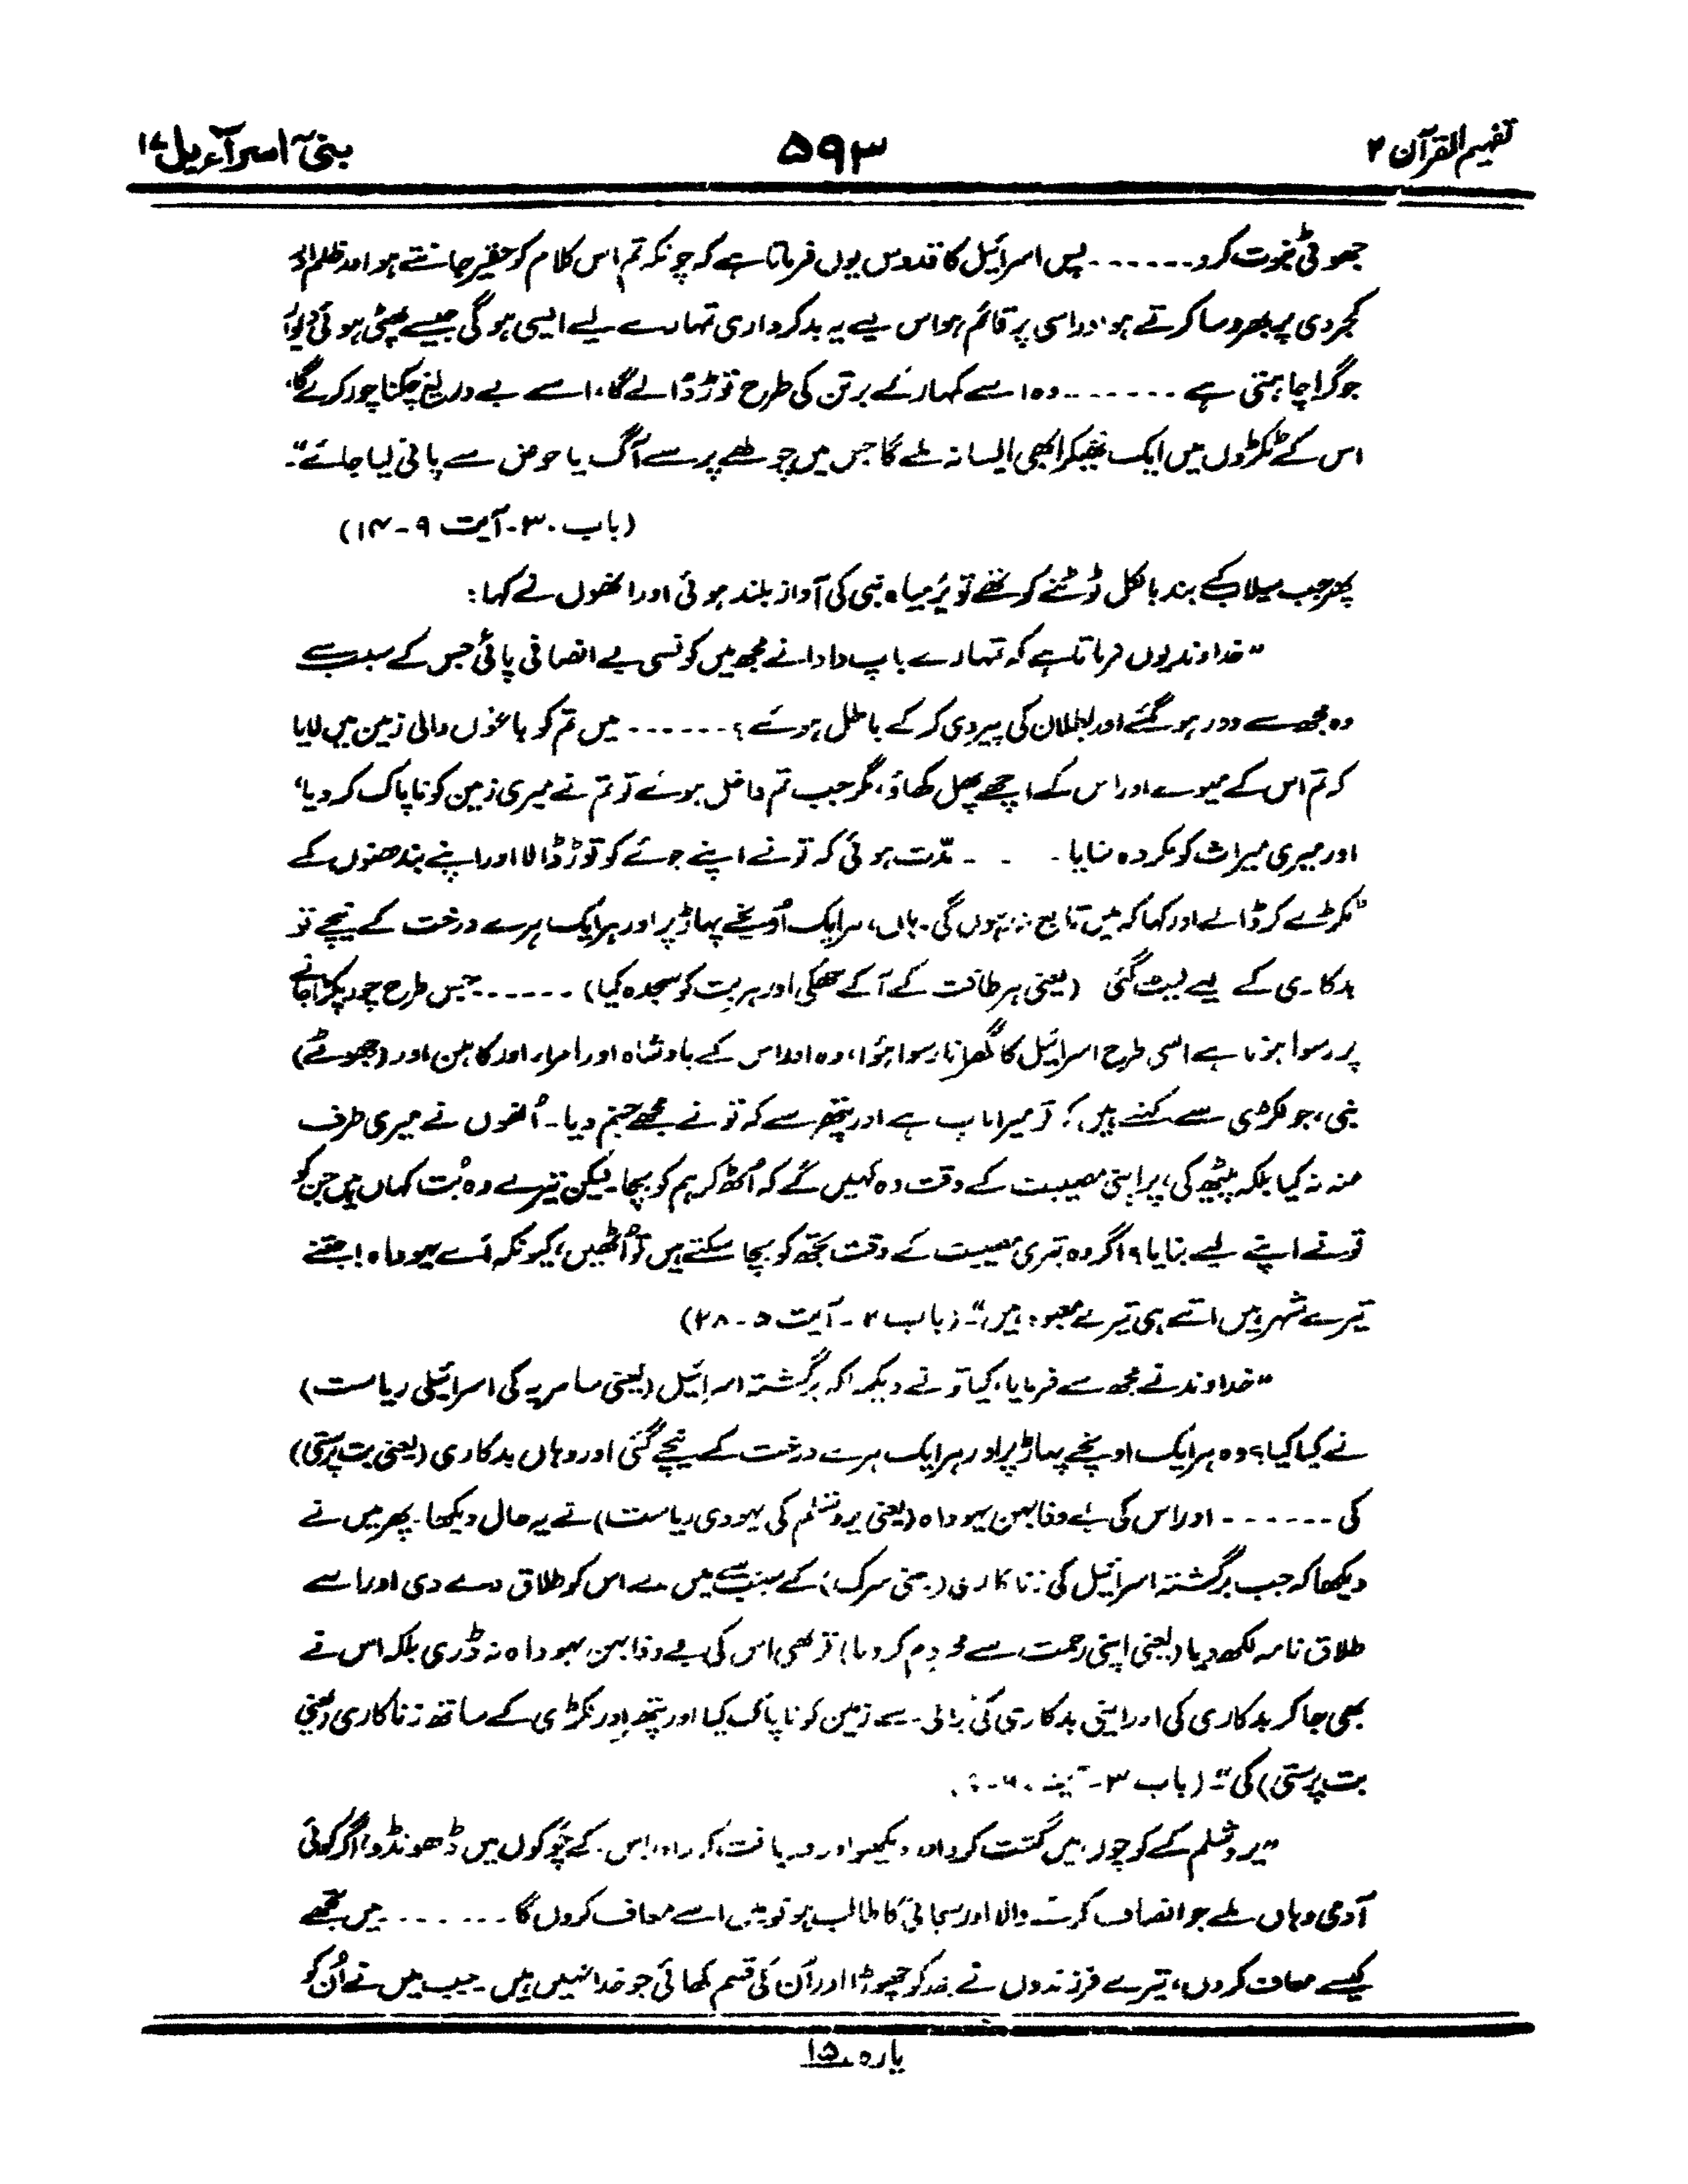 تفہیم القرآن ۲
۵۹۳
بنیٓ اسرآءیل ۱۷
جھوٹی نبوت کرو۔۔۔۔۔۔۔ پس اسرائیل کا قدوس یوں فرماتا ہے کہ چونکہ تم اس کلام کو حقیر جانتے ہو اور ظلم اور
کجروی پر بھروسا کرتے ہو اور اسی پر قائم ہو اس لیے یہ بدکرداری تمہارے لیے ایسی ہو گی جیسے پھٹی ہوئی دیوار
جو گرا چاہتی ہے ۔۔۔۔۔۔۔ وہ اسے کمہار کے برتن کی طرح توڑ ڈالے گا، اسے بے دریغ چکنا چور کرے گا،
اس کے ٹکڑوں میں ایک ٹھیکرا بھی ایسا نہ ملے گا جس میں چولھے پر سے آگ یا حوض سے پانی لیا جائے“۔
(باب ۳۰۔ آیت ۹-۱۴)
پھر جب سیلاب کے بند بالکل ٹوٹنے کو تھے تو یرمیاہ نبی کی آواز بلند ہوئی اور انھوں نے کہا:
”خداوند یوں فرماتا ہے کہ تمہارے باپ دادا نے مجھ میں کونسی بے انصافی پائی جس کے سبب سے
وہ مجھ سے دور ہو گئے اور بطلان کی پیروی کر کے باطل ہوئے؟ ۔۔۔۔۔۔ میں تم کو باغوں والی زمین میں لایا
کہ تم اس کے میوے اور اس کے اچھے پھل کھاؤ، مگر جب تم داخل ہوئے تو تم نے میری زمین کو ناپاک کر دیا،
اور میری میراث کو مکروہ بنایا۔ ۔ ۔ ۔ مدّت ہوئی کہ تو نے اپنے جوئے کو توڑ ڈالا اور اپنے بندھنوں کے
ٹکڑے کر ڈالے اور کہا کہ میں تابع نہ رہوں گی۔ ہاں، ہر ایک اُونچے پہاڑ پر اور ہر ایک ہرے درخت کے نیچے تو
بدکاری کے لیے لیٹ گئی (یعنی ہر طاقت کے آگے جھکی اور ہر بت کو سجدہ کیا) ۔۔۔۔۔۔ جس طرح چور پکڑا جانے
پر رسوا ہوتا ہے اسی طرح اسرائیل کا گھرانا رسوا ہُوا، وہ اور اس کے بادشاہ اور امراء اور کاہن اور (جھوٹے)
نبی، جو لکڑی سے کہتے ہیں کہ تو میرا باپ ہے اور پتھر سے کہ تو نے مجھے جنم دیا۔ اُنھوں نے میری طرف
منہ نہ کیا بلکہ پیٹھ کی، پر اپنی مصیبت کے وقت وہ کہیں گے کہ اُٹھ کر ہم کو بچا۔ لیکن تیرے وہ بُت کہاں ہیں جن کو
تو نے اپنے لیے بنایا؟ اگر وہ تیری مصیبت کے وقت تجھ کو بچا سکتے ہیں تو اُٹھیں، کیونکہ اَے یہوداہ! جتنے
تیرے شہر ہیں اتنے ہی تیرے معبود ہیں“۔ (باب ۲۔ آیت ۵-۲۸)
”خداوند نے مجھ سے فرمایا، کیا تو نے دیکھا کہ برگشتہ اسرائیل (یعنی سامریہ کی اسرائیلی ریاست)
نے کیا کیا؟ وہ ہر ایک اونچے پہاڑ پر اور ہر ایک ہرے درخت کے نیچے گئی اور وہاں بدکاری (یعنی بت پرستی)
کی ۔۔۔۔۔۔ اور اس کی بے وفا بہن یہوداہ (یعنی یروشلم کی یہودی ریاست) نے یہ حال دیکھا۔ پھر میں نے
دیکھا کہ جب برگشتہ اسرائیل کی زناکاری (یعنی شرک) کے سبب سے میں نے اس کو طلاق دے دی اور اسے
طلاق نامہ لکھ دیا (یعنی اپنی رحمت سے محروم کر دیا) تو بھی اس کی بے وفا بہن یہوداہ نہ ڈری بلکہ اس نے
بھی جا کر بدکاری کی اور اپنی بدکاری کی برائی سے زمین کو ناپاک کیا اور پتھر اور لکڑی کے ساتھ زناکاری (یعنی
بت پرستی) کی“۔ (باب ۳۔
”یروشلم کے کوچوں میں گشت کرو اور دیکھو اور دریافت کرو اور اس کے چوکوں میں ڈھونڈو، اگر کوئی
آدمی وہاں ملے جو انصاف کرنے والا اور سچائی کا طالب ہو تو میں اسے معاف کروں گا ۔۔۔۔۔۔۔ میں تجھے
کیسے معاف کروں، تیرے فرزندوں نے مجھ کو چھوڑا اور اُن کی قسم کھائی جو خدا نہیں ہیں۔ جب میں نے اُن کو
پارہ ۱۵